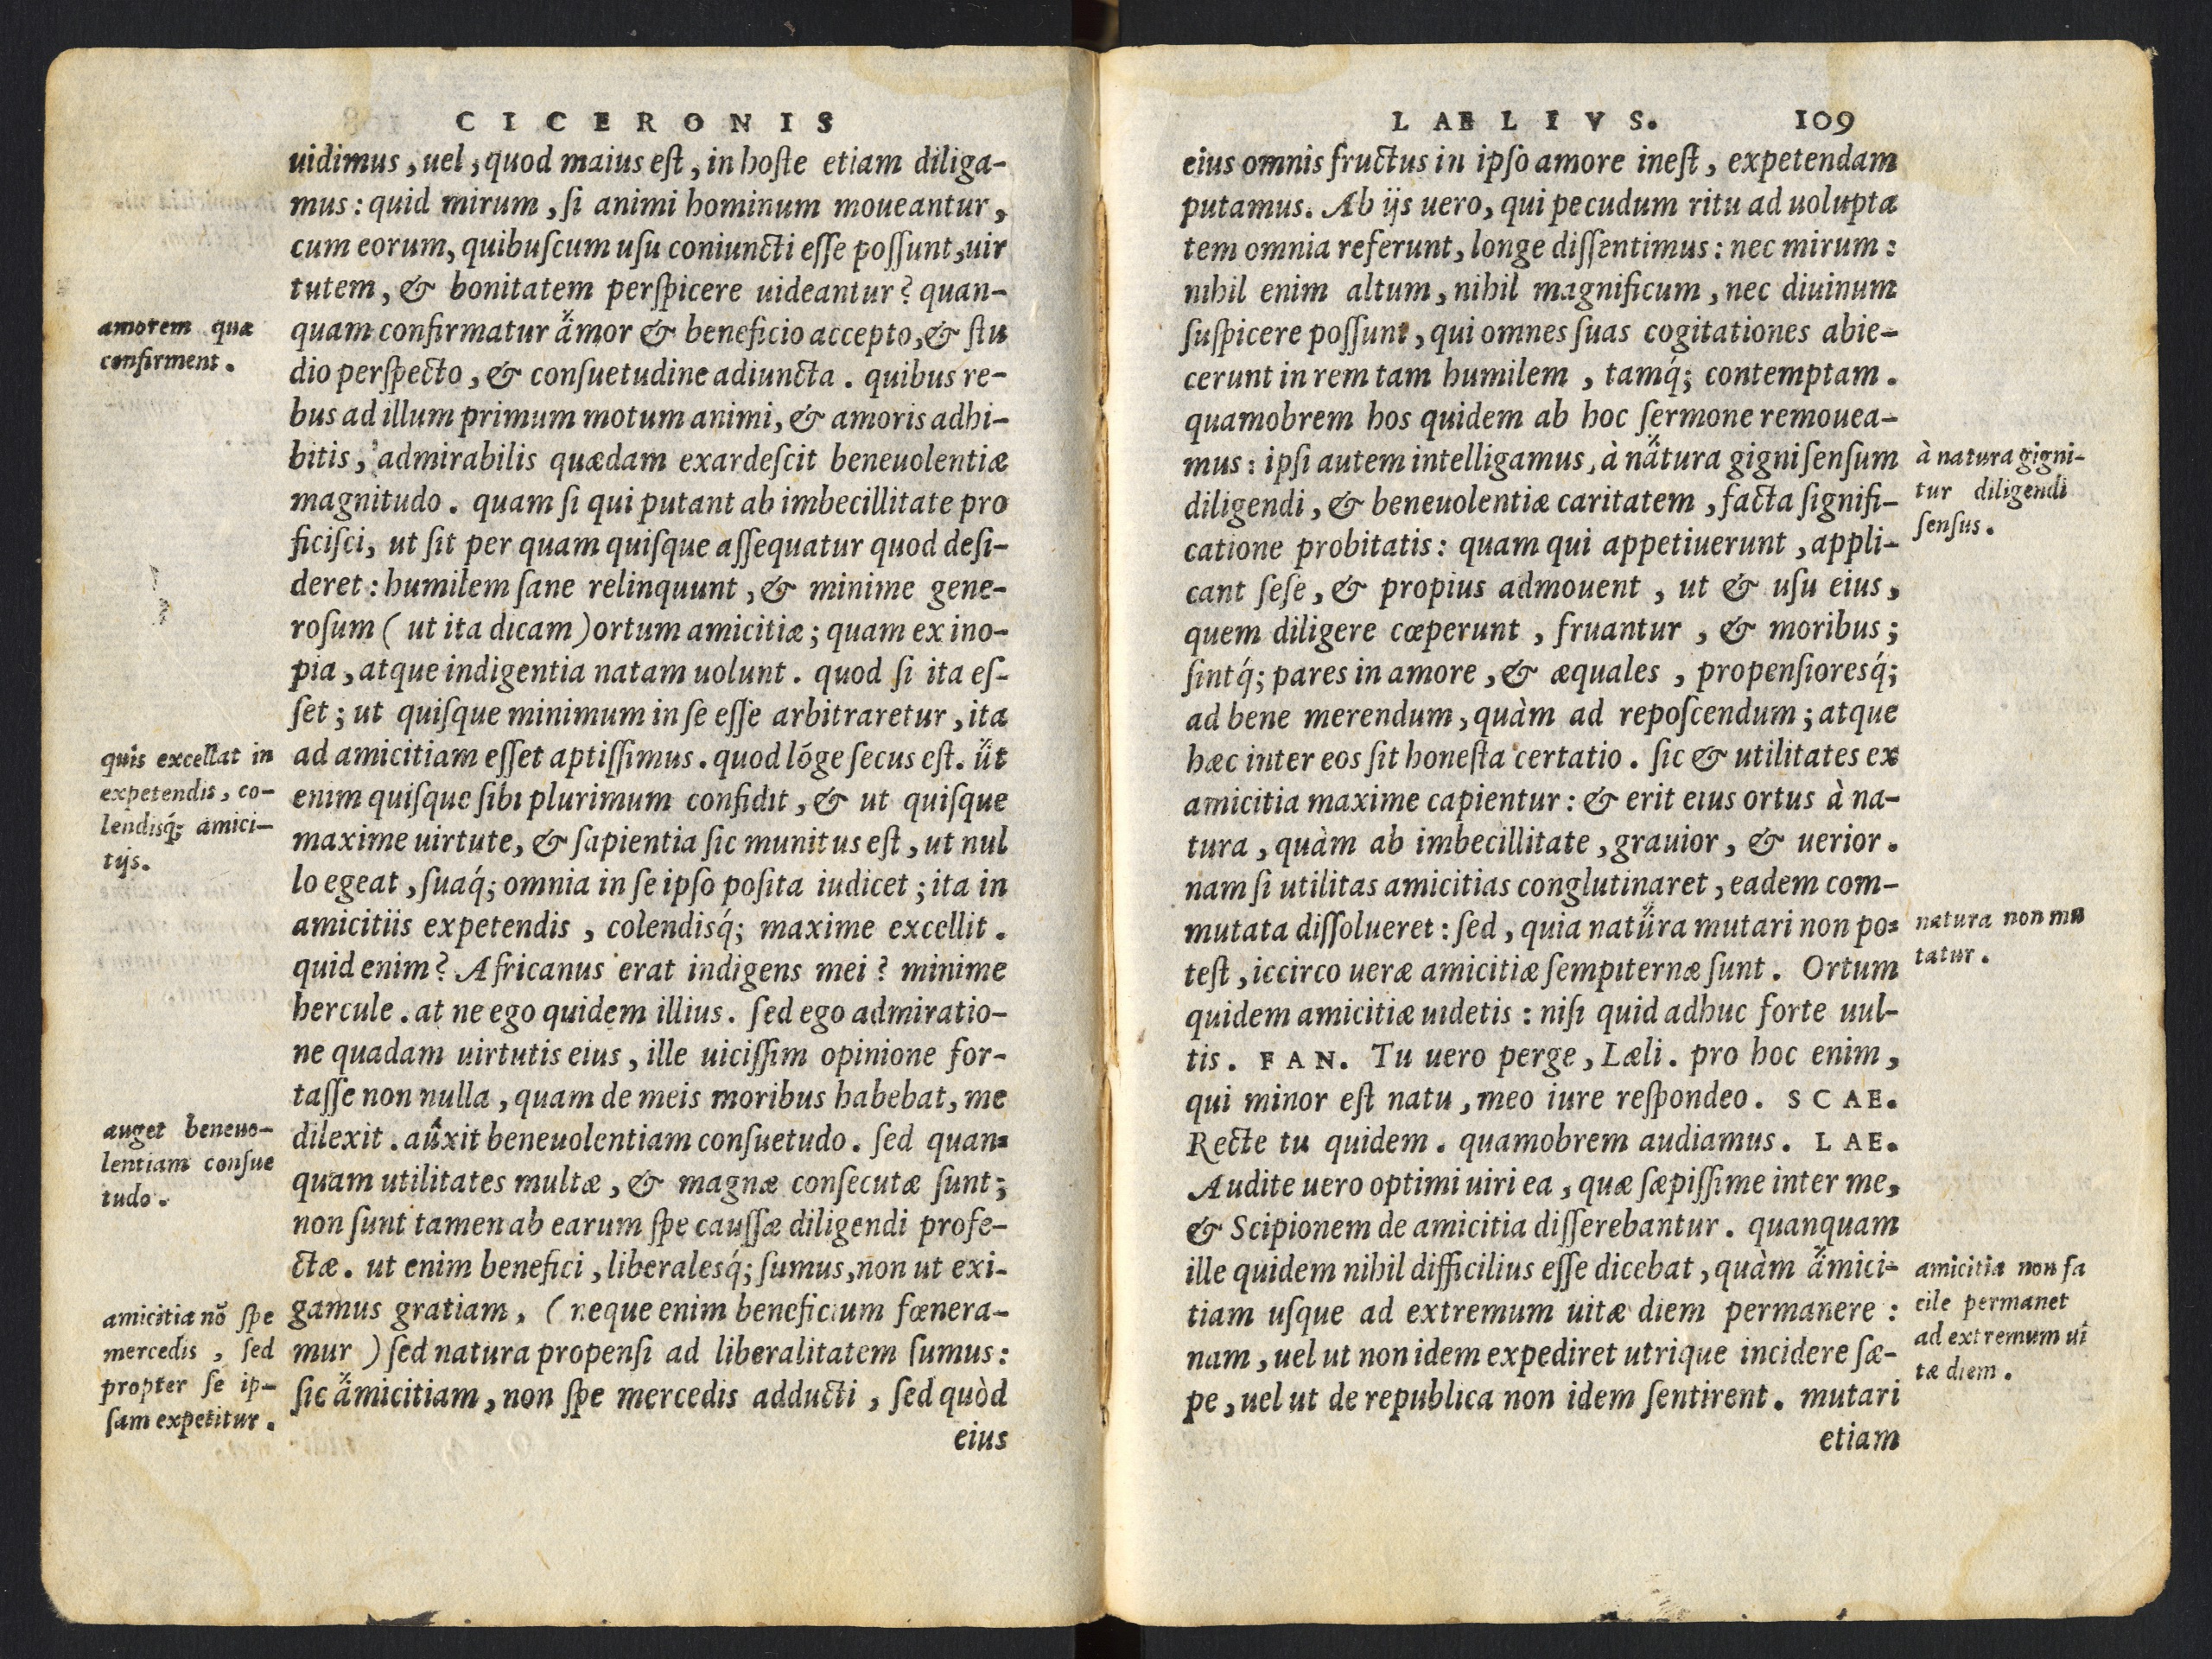 CICERONIS
uidimus, uel, quod maius eſt, in hoſte etiam diliga-
mus: quid mirum, ſi animi hominum moueantur,
cum eorum, quibuſcum uſu coniuncti eſſe poſſunt, uir
tutem, & bonitatem perſpicere uideantur? quan-
quam confirmatur amor & beneficio accepto, & ſtu
dio perſpecto, & conſuetudine adiuncta. quibus re-
bus ad illum primum motum animi, & amoris adhi-
bitis, admirabilis quædam exardeſcit beneuolentiæ
magnitudo. quam ſi qui putant ab imbecillitate pro
ficiſci, ut ſit per quam quiſque aſſequatur quod deſi-
deret: humilem ſane relinquunt, & minime gene-
roſum (ut ita dicam) ortum amicitiæ; quam ex ino-
pia, atque indigentia natam uolunt. quod ſi ita eſ-
ſet; ut quiſque minimum in ſe eſſe arbitraretur, ita
ad amicitiam eſſet aptiſſimus. quod lóge ſecus eſt. ut
enim quiſque ſibi plurimum confidit, & ut quiſque
maxime uirtute, & ſapientia ſic munitus eſt, ut nul
lo egeat, ſuaq́; omnia in ſe ipſo poſita iudicet; ita in
amicitiis expetendis, colendisq́; maxime excellit.
quid enim? Africanus erat indigens mei? minime
hercule. at ne ego quidem illius. ſed ego admiratio-
ne quadam uirtutis eius, ille uiciſſim opinione for-
taſſe non nulla, quam de meis moribus habebat, me
dilexit. auxit beneuolentiam conſuetudo. ſed quan-
quam utilitates multæ, & magnæ conſecutæ ſunt;
non ſunt tamen ab earum ſpe cauſſæ diligendi profe-
ctæ. ut enim benefici, liberalesq́; ſumus, non ut exi-
gamus gratiam, (neque enim beneficium fœnera-
mur) ſed natura propenſi ad liberalitatem ſumus:
ſic amicitiam, non ſpe mercedis adducti, ſed quòd
eius
amorem quæ
confirment.
quis excellat in
expetendis, co-
lendisq́; amici-
tijs.
auget beneuo-
lentiam conſue
tudo.
amicitia nō ſpe
mercedis, ſed
propter ſe ip-
ſam expetitur.
LAELIVS. 109
eius omnis fructus in ipſo amore ineſt, expetendam
putamus. Ab ijs uero, qui pecudum ritu ad uolupta
tem omnia referunt, longe diſſentimus: nec mirum:
nihil enim altum, nihil magnificum, nec diuinum
ſuſpicere poſſunt, qui omnes ſuas cogitationes abie-
cerunt in rem tam humilem, tamq́; contemptam.
quamobrem hos quidem ab hoc ſermone remouea-
mus: ipſi autem intelligamus, à natura gigni ſenſum
diligendi, & beneuolentiæ caritatem, facta ſignifi-
catione probitatis: quam qui appetiuerunt, appli-
cant ſeſe, & propius admouent, ut & uſu eius,
quem diligere cœperunt, fruantur, & moribus;
ſintq́; pares in amore, & æquales, propenſioresq́;
ad bene merendum, quàm ad repoſcendum; atque
hæc inter eos ſit honeſta certatio. ſic & utilitates ex
amicitia maxime capientur: & erit eius ortus à na-
tura, quàm ab imbecillitate, grauior, & uerior.
nam ſi utilitas amicitias conglutinaret, eadem com-
mutata diſſolueret: ſed, quia natura mutari non po-
teſt, iccirco ueræ amicitiæ ſempiternæ ſunt. Ortum
quidem amicitiæ uidetis: niſi quid adhuc forte uul-
tis. FAN. Tu uero perge, Læli. pro hoc enim,
qui minor eſt natu, meo iure reſpondeo. SCAE.
Recte tu quidem. quamobrem audiamus. LAE.
Audite uero optimi uiri ea, quæ ſæpiſſime inter me,
& Scipionem de amicitia diſſerebantur. quanquam
ille quidem nihil difficilius eſſe dicebat, quàm amici-
tiam uſque ad extremum uitæ diem permanere:
nam, uel ut non idem expediret utrique incidere ſæ-
pe, uel ut de republica non idem ſentirent. mutari
etiam
à natura gigni-
tur diligendi
ſenſus.
natura non mu
tatur.
amicitia non fa
cile permanet
ad extremum ui
tæ diem.